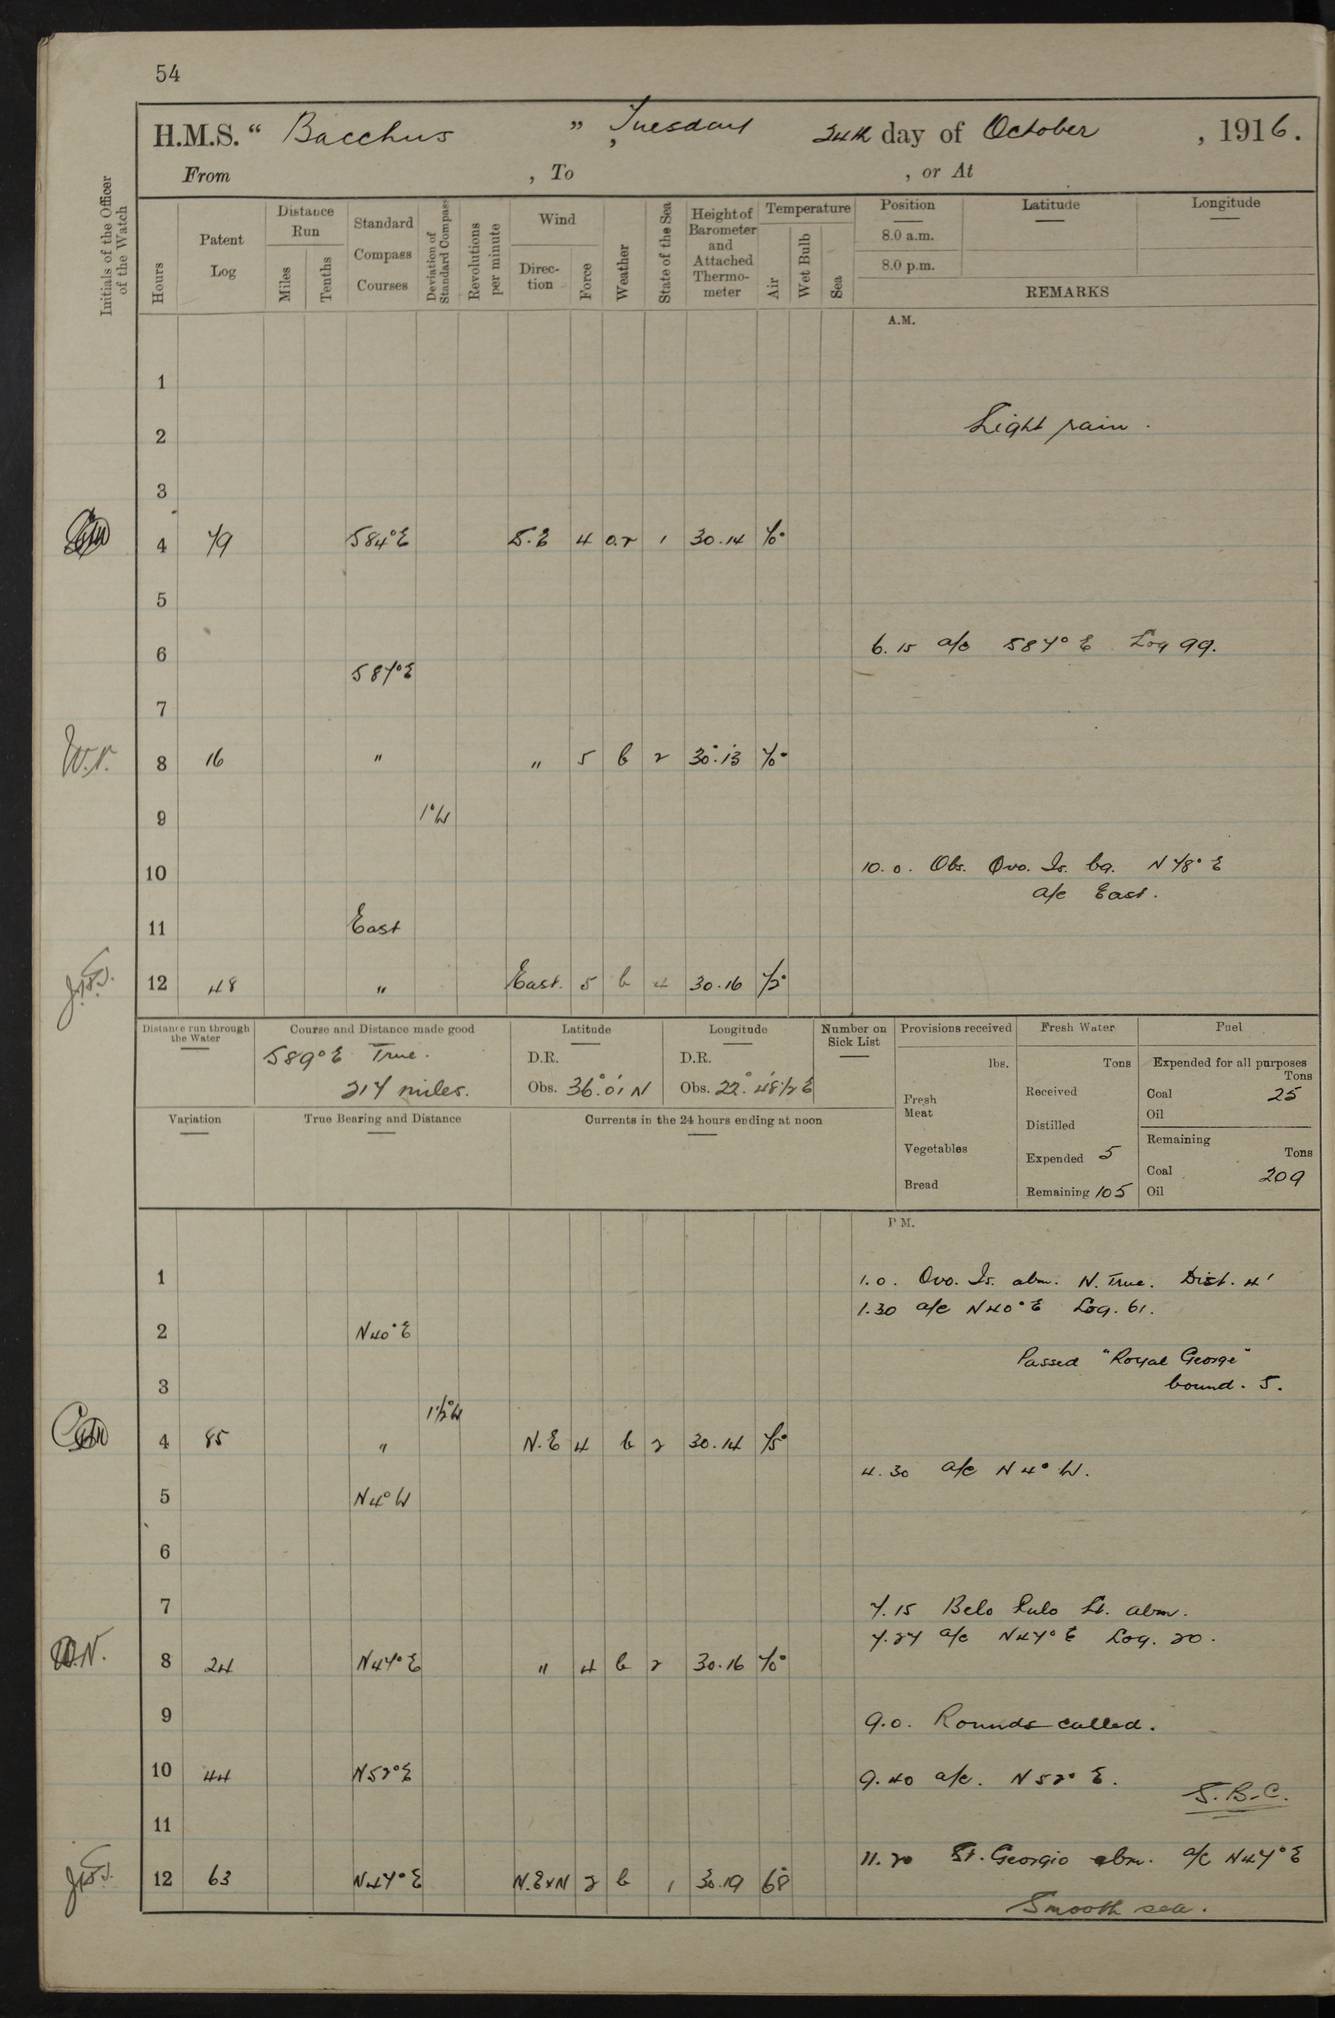 54
H.M.S. “ Bacchus ” , Tuesday 24th day of October , 1916.
From , To , or At
Initials of the Officer of the Watch
Hours
Patent Log
Distance Run
Miles
Tenths
Standard Compass Courses
Deviation of Standard Compass
Revolutions per minute
Wind
Direction
Force
Weather
State of the Sea
Height of Barometer and Attached Thermometer
Temperature
Air
Wet Bulb
Sea
Position Latitude Longitude
8.0 a.m.
8.0 p.m.
REMARKS
A.M.
1
Light rain.
2
3
4 79 S84°E S.E 4 o.r 1 30.14 70°
5
6 6.15 a/c S87°E Log 99.
S87°E
7
W.N. 8 16 " " 5 b 2 30.13 70°
9 1°W
10 10.0. Obs. Ovo. Is. bg. N78°E
a/c East.
11 East
12 48 " East. 5 b 4 30.16 72°
Distance run through the Water
Course and Distance made good
S89°E True.
217 miles.
Latitude
D.R.
Obs. 36°.01' N
Longitude
D.R.
Obs. 22°.48½' E
Number on Sick List
Provisions received
lbs.
Fresh Meat
Vegetables
Bread
Fresh Water
Tons
Received
Distilled
Expended 5
Remaining 105
Fuel
Expended for all purposes
Tons
Coal 25
Oil
Remaining
Tons
Coal 209
Oil
Variation
True Bearing and Distance
Currents in the 24 hours ending at noon
P.M.
1 1.0. Ovo. Is. abm. N. True. Dist. 4'
1.30 a/c N40°E Log. 61.
2 N40°E
Passed "Royal George"
3 bound. S.
1½°W
4 85 " N.E 4 b 2 30.14 75°
4.30 a/c N4°W.
5 N4°W
6
7 7.15 Belo Pulo Lt. abm.
7.27 a/c N47°E Log. 20.
W.N. 8 24 N47°E " 4 b 2 30.16 70°
9 9.0. Rounds called.
10 44 N52°E 9.40 a/c. N52°E.
S.B.C.
11
11.20 St. Georgio abm. a/c N47°E
12 63 N47°E N.E×N 2 b 1 30.19 68°
Smooth sea.